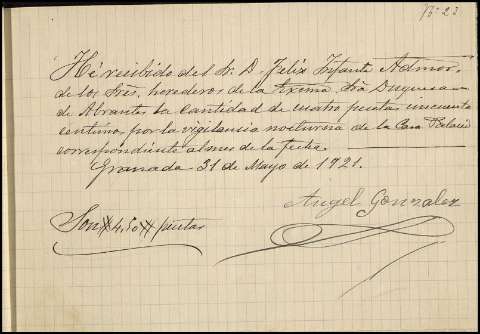 Nº 23
He recibido del Sr. D. Felix Infante Admor.
de los Sres. herederos de la Excma. Sra Duquesa
de Abrantes la cantidad de cuatro pesetas cincuenta
centimos, por la vigilancia nocturna de la Casa Palacio
correspondiente al mes de la fecha.
Granada 31 de Mayo de 1921.
Angel Gonzalez
Son # 4,50 # pesetas